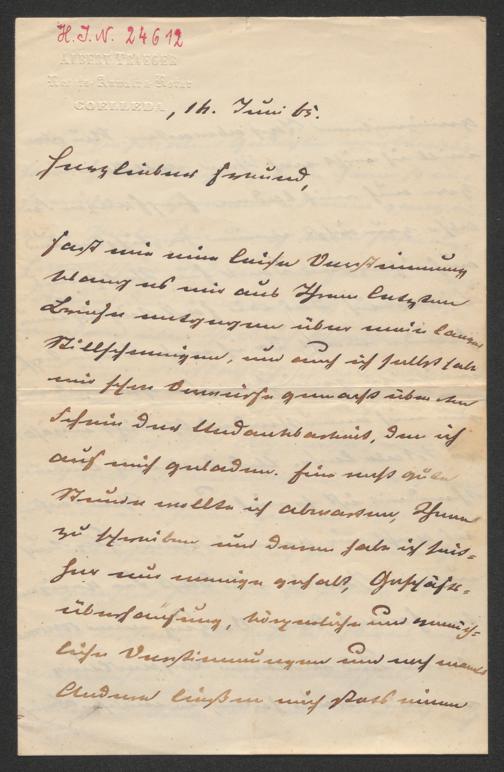 H. I. N. 24612
ALBERT TRAEGER
Rechts-Anwalt & Notar
COELLEDA
, 14. Juni 65.
Herzlieber Freund,
Fast wie eine leise Verstimmung
klang es mir aus Ihren letzten
Briefe entgegen über mein langes
Stillschweigen, und auch ich selbst habe
mir schon Vorwürfe gemacht über den
Schein der Undankbarkeit, den ich
auf mich geladen. Eine recht gute
Stunde wollte ich abwarten, Ihnen
zu schreiben und deren habe ich seit-
her nur wenige gehabt, Geschäfts-
überhäufung, körperliche und gemüth-
liche Verstimmungen und noch manches
Andere ließen mich stets einen